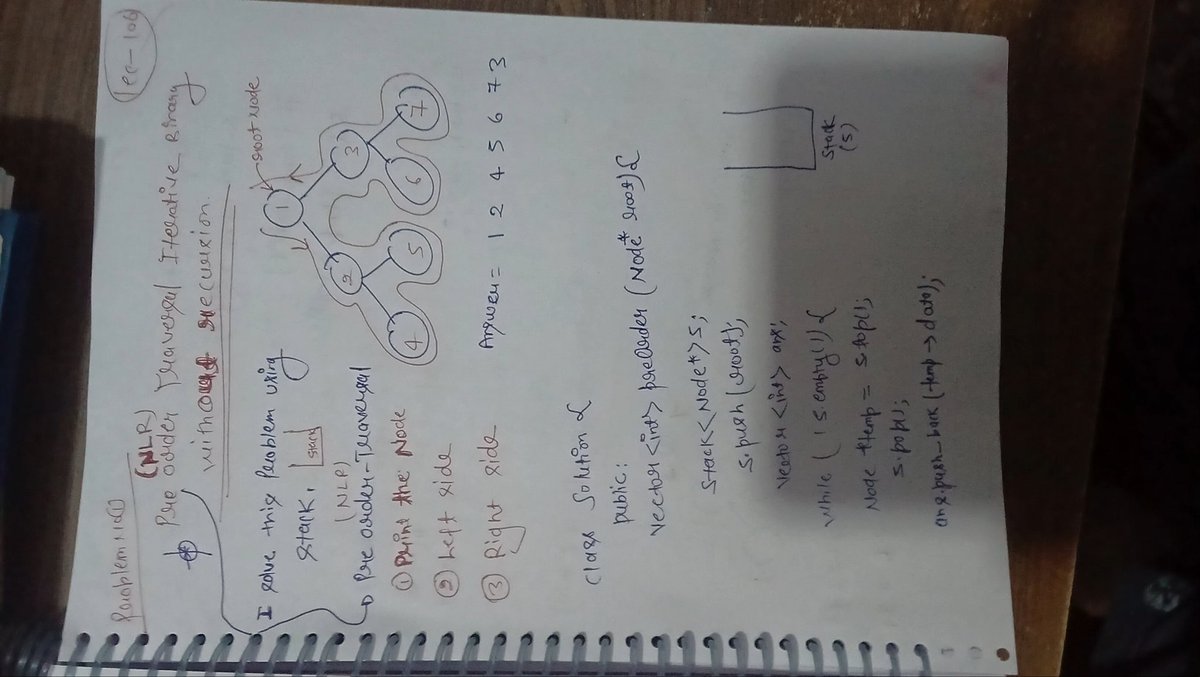 Lec-106
Problem:101
(NLR)
Pre order Traversal Iterative Binary
without recursion.
I solve this Problem using
stack.
stack
(NLR)
Pre order-Traversal
① Print the Node
② Left side
③ Right side
root node
1
2
3
4
5
6
7
Answer = 1 2 4 5 6 7 3
class Solution {
public:
vector<int> preorder (Node* root) {
stack<Node*> s;
s.push(root);
vector<int> ans;
while ( ! s empty()) {
Node *temp = s top();
s.pop();
ans.push_back (temp → data);
stack
(s)